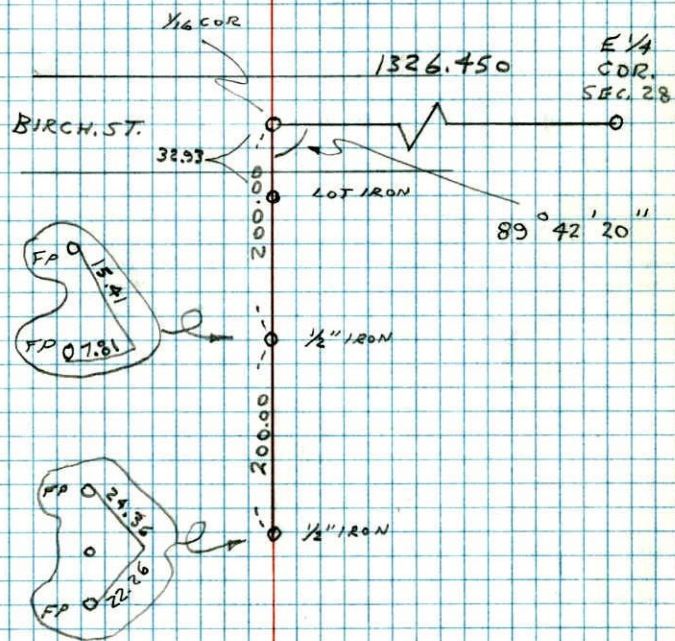 1/16 COR
1326.450
E 1/4
COR.
SEC. 28
BIRCH. ST.
32.93
LOT IRON
200.00
89° 42' 20"
FP
15.41
FP
7.81
1/2" IRON
200.00
FP
24.36
22.26
FP
1/2" IRON